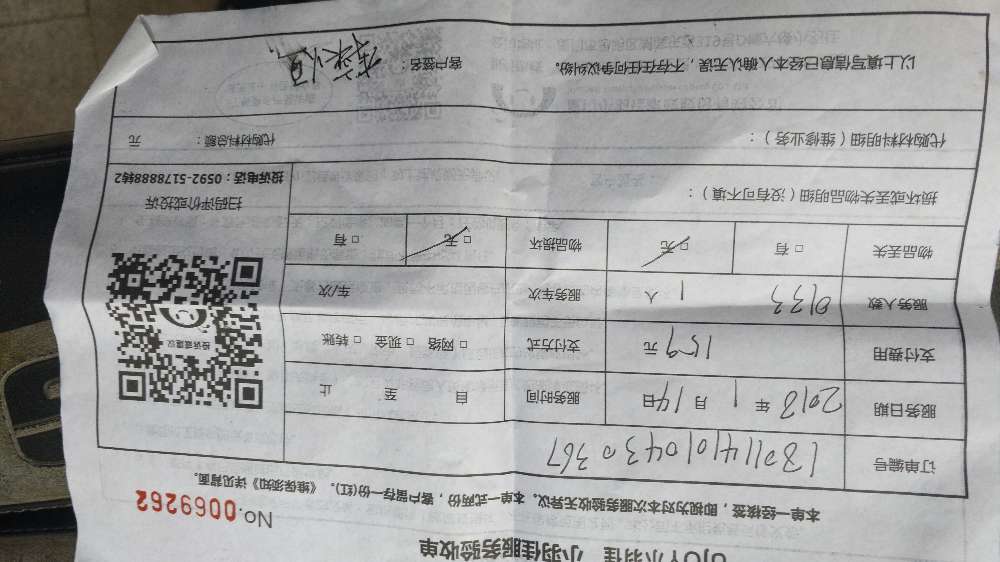 小羽佳 小羽佳服务验收单
No. 0069262
本单一经核签，即视为对本次服务验收无异议。本单一式两份，客户留存一份(红)。《维保须知》详见背面。
订单编号
服务日期 2018 年 1 月 14 日 服务时间 自 至 止
支付费用 159 元 支付方式 □ 网络 □ 现金 □ 转账
服务人数 0133 1 人 服务车次 车/次
物品丢失 □ 有 □ 无 物品损坏 □ 无 □ 有
投诉或建议
扫码评价或投诉
投诉电话：0592-5178888转2
损坏或丢失物品明细（没有可不填）：
代购材料明细（维修业务）： 代购材料总额： 元
以上填写信息已经本人确认无误，不存在任何争议纠纷。 客户签名：